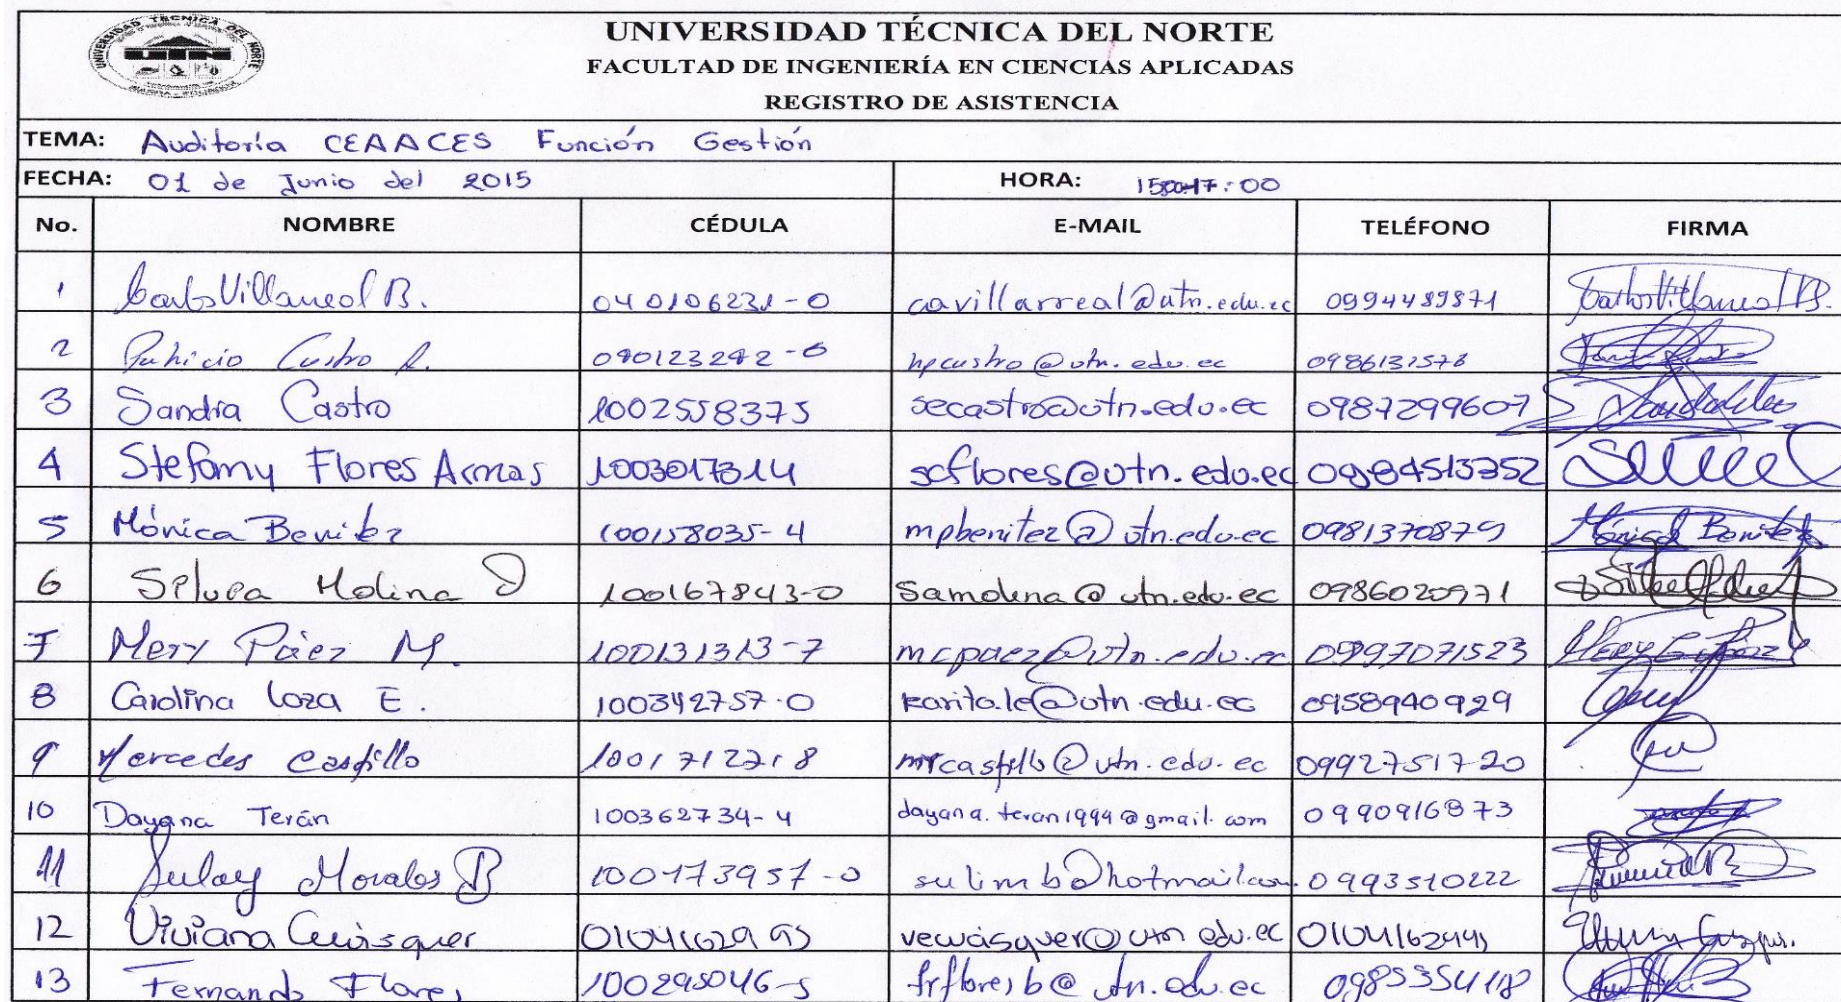 UNIVERSIDAD TÉCNICA DEL NORTE
FACULTAD DE INGENIERÍA EN CIENCIAS APLICADAS
REGISTRO DE ASISTENCIA
UNIVERSIDAD TECNICA DEL NORTE
UTN
TEMA: Auditoría CEAACES Función Gestión
FECHA: 01 de Junio del 2015 HORA: 17:00
No. NOMBRE CÉDULA E-MAIL TELÉFONO FIRMA
1 Carlos Villarreal B. 040106231-0 cavillarreal@utn.edu.ec 0994489871 Carlos Villarreal B.
2 Patricio Castro R. hpcastro@utn.edu.ec
3 Sandra Castro 1002558375 secastro@utn.edu.ec 0987299607
4 Stefany Flores Armas 1003017314 scflores@utn.edu.ec 0984513352
5 Mónica Benitez 100158035-4 mpbenitez@utn.edu.ec 0981370879 Mónica Benitez
6 Silvia Molina 100167843-0 samolina@utn.edu.ec 0986020971
7 Mery Páez M. 100131313-7 mcpaez@utn.edu.ec 09997071523
8 Carolina Loza E. 100342757-0 karita.le@utn.edu.ec 0958940929
9 Mercedes Castillo 1001712218 mrcastillo@utn.edu.ec 0992751720
10 Dayana Terán 100362734-4 dayana.teran1994@gmail.com 0990916873
11 Sulay Morales B 100173957-0 sulimb@hotmail.com 0993510222
12 Viviana
13 Fernando Flores 100295046-5 frfloresb@utn.edu.ec 0985354118